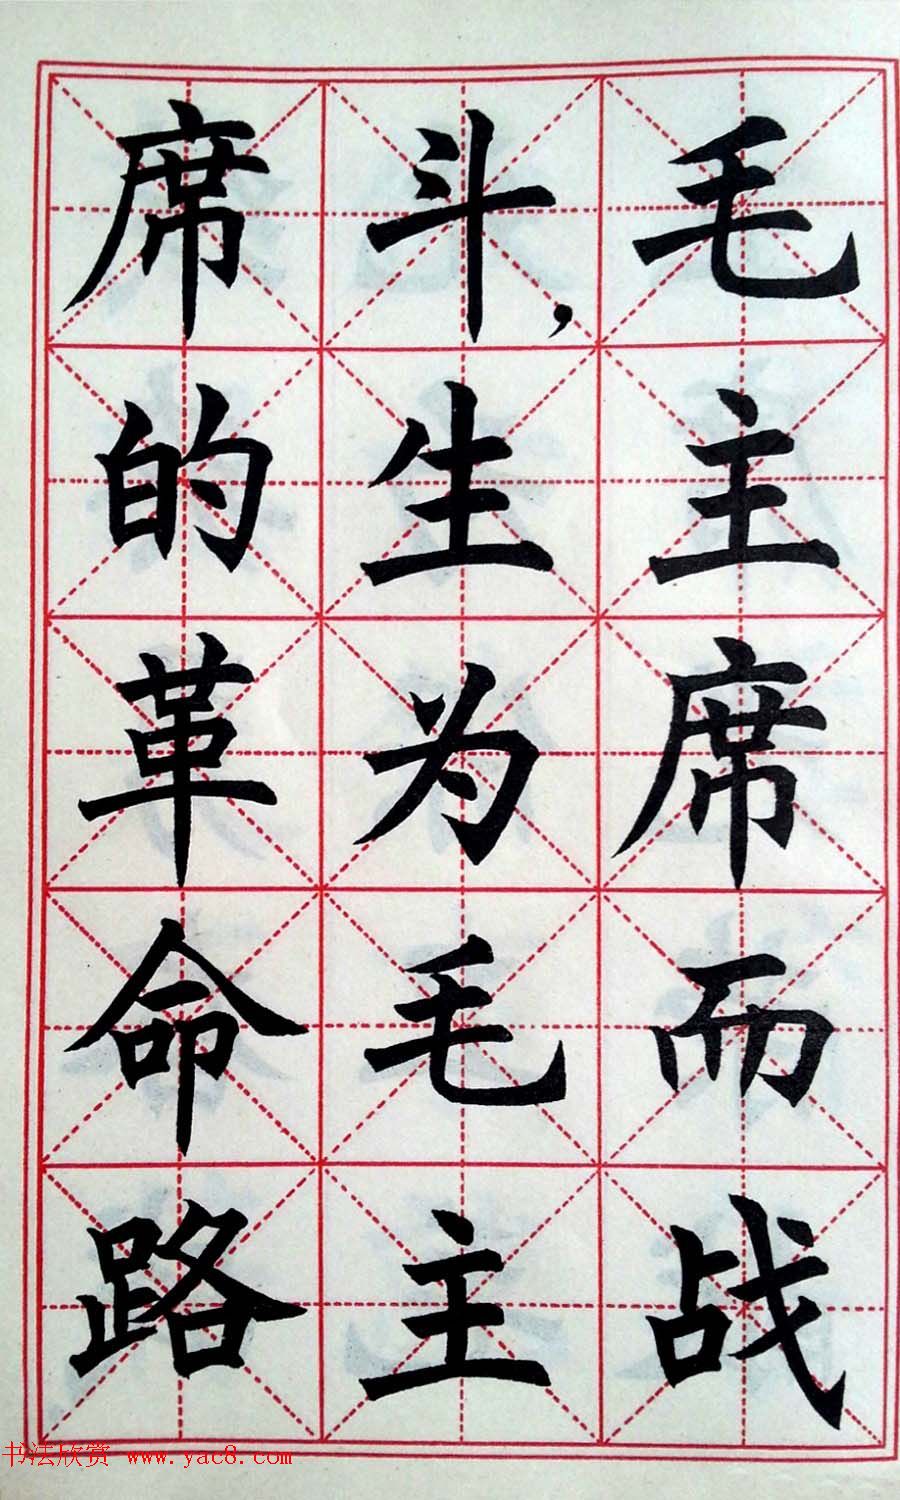 毛主席而战
斗，生为毛主
席的革命路
书法欣赏 www.yac8.com